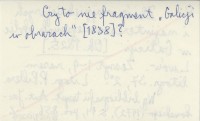 Czy to nie fragment „Galicji
w obrazach" [1838]?